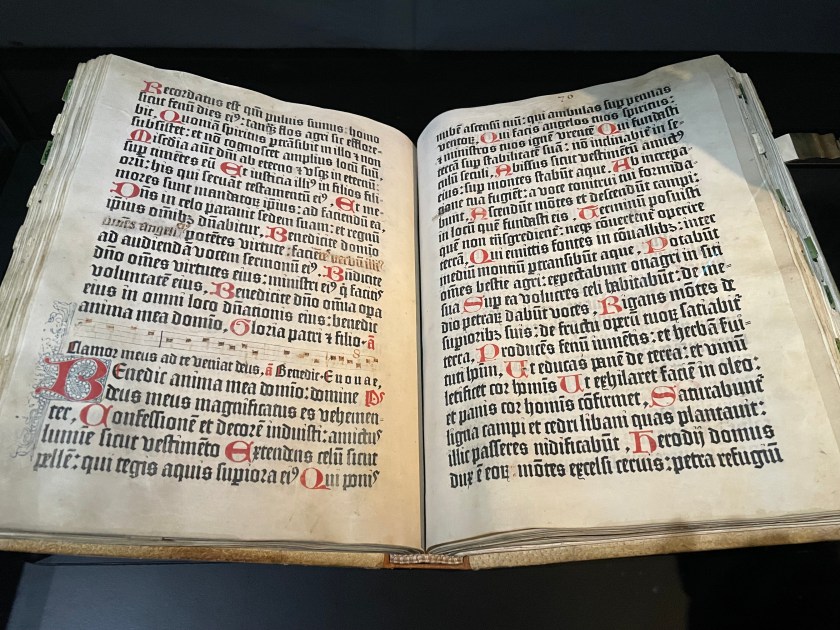 Recordatus est qm̄ puluis sumus: homo
sicut fenū dies eꝰ: tanqͣ flos agri sic efflore-
bit. Quoniā spiritus ptrāsibit in illo ⁊ non
subsistet: et nō cognoscet amplius locū suū.
Misc̄dia aūt dn̄i ab eterno ⁊ vsqꝫ in eternū:
sup timētes eū Et iusticia illiꝰ in filios fili-
orū: his qui seruāt testamentū eiꝰ. Et me-
mores sunt mandatoꝝ ipsius: ad faciendū ea.
Dn̄s in celo parauit sedem suam: et regnū
ipsius om̄ibꝫ dn̄abitur. Benedicite domino
om̄s angeli eiꝰ potētes virtute: faciētes verbū illiꝰ
ad audiendā vocem sermonū eiꝰ. Bn̄dicite
dn̄o om̄es virtutes eius: ministri eiꝰ q̄ facitꝭ
voluntatē eius. Benedicite dn̄o om̄ia opa
eius in omni loco dn̄ationis eius: benedic
anima mea domino. Gloria patri ⁊ filio. a
Clamor meus ad te veniat deus, a Benedic. Euouae.
Benedic anima mea domino: domine Ps
deus meus magnificatus es vehemen-
ter. Confessionē et decorē induisti: amictꝰ
lumine sicut vestimēto Extendens celū sicut
pellē: qui tegis aquis supiora eiꝰ Qui ponis
70
nubē ascensū tuū: qui ambulas sup pennas
ventoꝝ. Qui facis angelos tuos spiritus:
⁊ ministros tuos ignē vrentē Qui fundasti
terrā sup stabilitatē suā: nō inclinabit in se-
culū seculi. Abissus sicut vestimentū amictꝰ
eius: sup montes stabūt aque. Ab increpa-
tione tua fugiēt: a voce tonitrui tui formida-
bunt. Ascendūt mōtes et descendūt campi:
in locū quē fundasti eis. Terminū posuisti
quē non trāsgredient: neqꝫ conuertent operire
terrā. Qui emittis fontes in cōuallibꝫ: inter
mediū montiū ptransibūt aque. Potabūt
om̄es bestie agri: expectabunt onagri in siti
sua Sup ea volucres celi habitabūt: de me-
dio petraꝝ dabūt voces. Rigans mōtes de
supioribꝫ suis: de fructu operū tuoꝝ saciabit
terra. Producēs fenū iumētis: et herbā sui-
tuti hoim. Ut educas panē de terra: et vinū
letificet cor hominis Ut exhilaret faciē in oleo:
et panis cor homis cōfirmet. Saturabunt
ligna campi et cedri libani quas plantauit:
illic passeres nidificabūt. Herodij domus
dux ē eoꝝ mōtes excelsi ceruis: petra refugiū